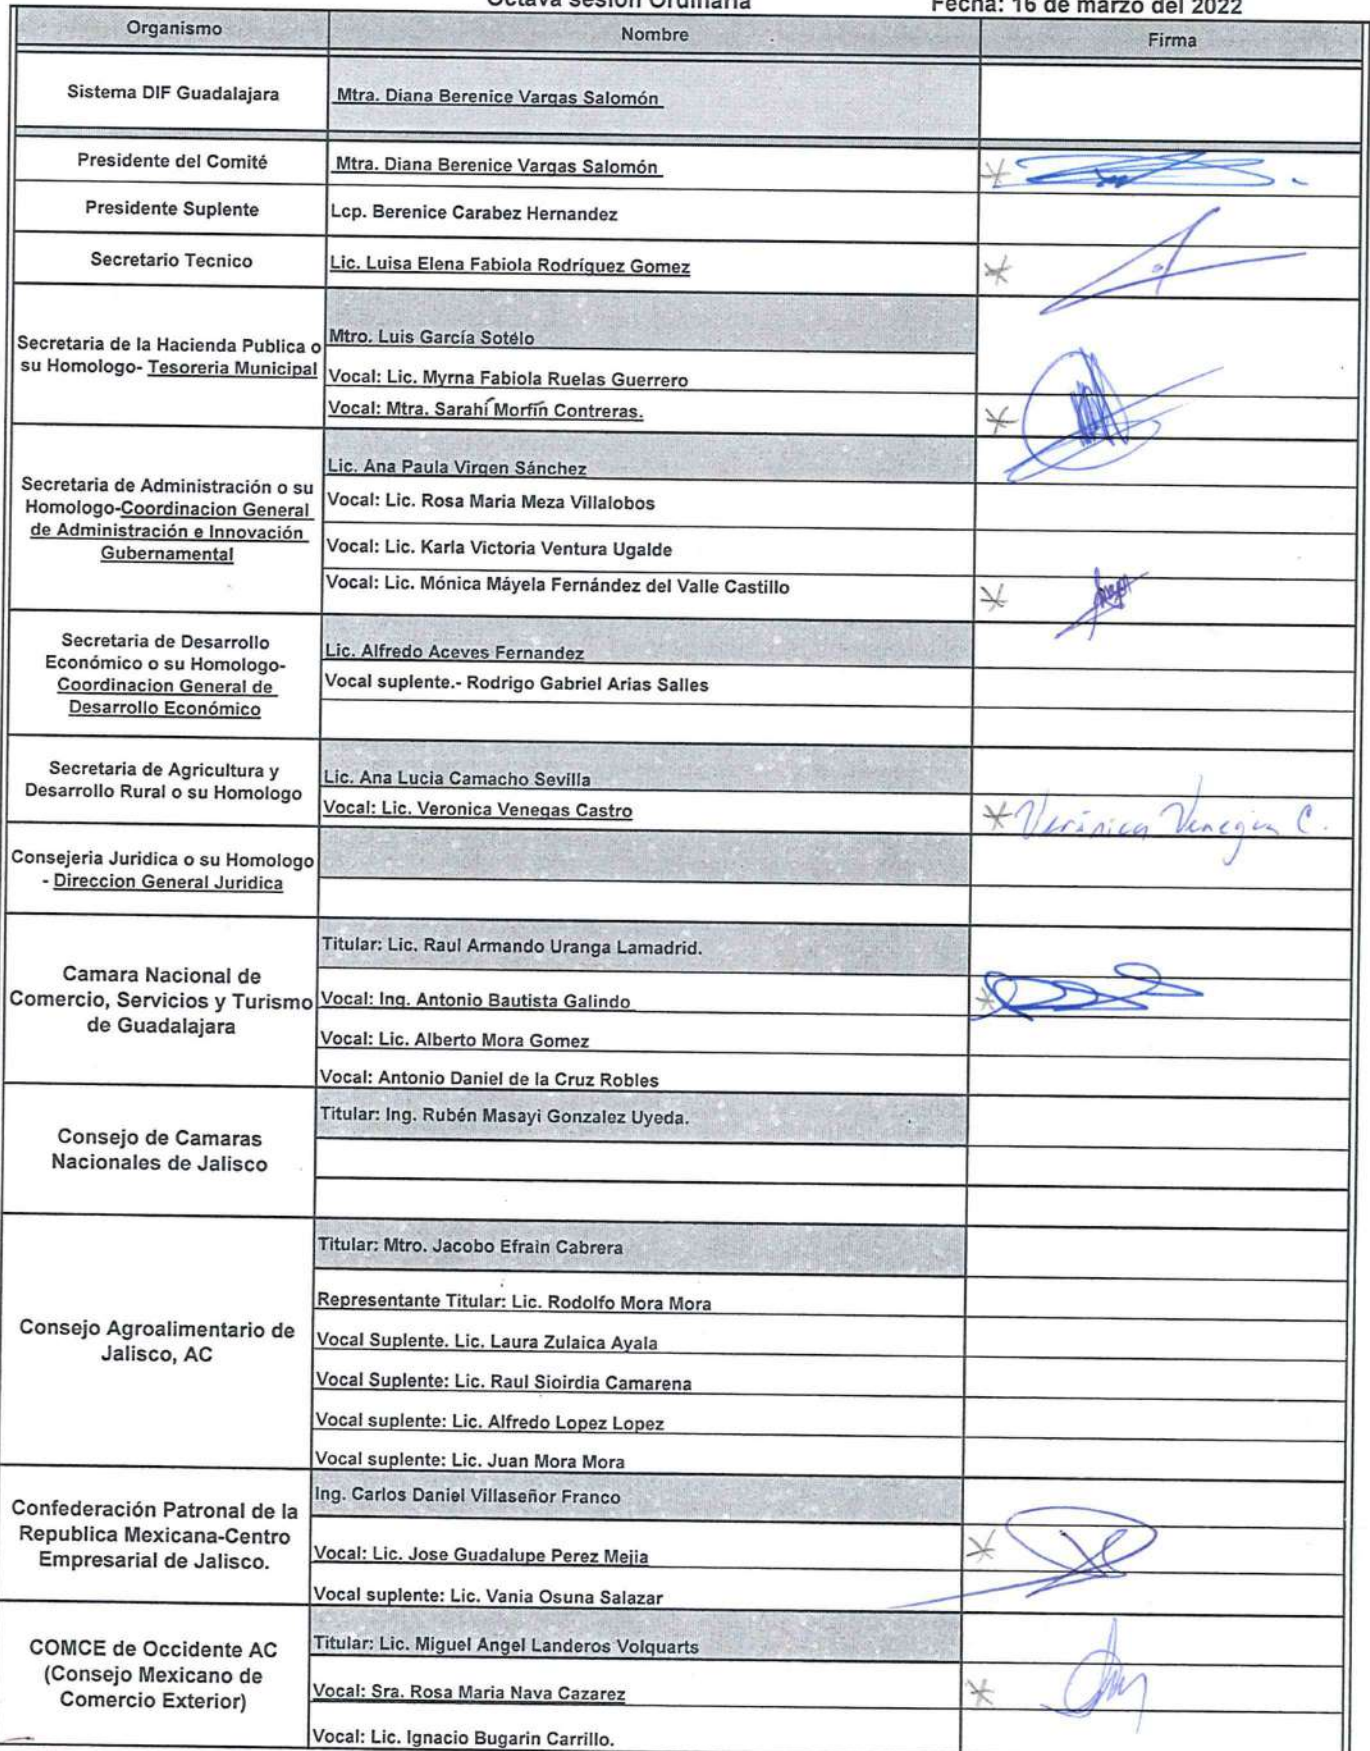 Octava sesión Ordinaria Fecha: 16 de marzo del 2022
Organismo Nombre Firma
Sistema DIF Guadalajara Mtra. Diana Berenice Vargas Salomón
Presidente del Comité Mtra. Diana Berenice Vargas Salomón
Presidente Suplente Lcp. Berenice Carabez Hernandez
Secretario Tecnico Lic. Luisa Elena Fabiola Rodríguez Gomez
Secretaria de la Hacienda Publica o
su Homologo- Tesoreria Municipal
Mtro. Luis García Sotélo
Vocal: Lic. Myrna Fabiola Ruelas Guerrero
Vocal: Mtra. Sarahí Morfín Contreras.
Secretaria de Administración o su
Homologo-Coordinacion General
de Administración e Innovación
Gubernamental
Lic. Ana Paula Virgen Sánchez
Vocal: Lic. Rosa Maria Meza Villalobos
Vocal: Lic. Karla Victoria Ventura Ugalde
Vocal: Lic. Mónica Máyela Fernández del Valle Castillo
Secretaria de Desarrollo
Económico o su Homologo-
Coordinacion General de
Desarrollo Económico
Lic. Alfredo Aceves Fernandez
Vocal suplente.- Rodrigo Gabriel Arias Salles
Secretaria de Agricultura y
Desarrollo Rural o su Homologo
Lic. Ana Lucia Camacho Sevilla
Vocal: Lic. Veronica Venegas Castro
Verónica Venegas C.
Consejeria Juridica o su Homologo
- Direccion General Juridica
Camara Nacional de
Comercio, Servicios y Turismo
de Guadalajara
Titular: Lic. Raul Armando Uranga Lamadrid.
Vocal: Ing. Antonio Bautista Galindo
Vocal: Lic. Alberto Mora Gomez
Vocal: Antonio Daniel de la Cruz Robles
Consejo de Camaras
Nacionales de Jalisco
Titular: Ing. Rubén Masayi Gonzalez Uyeda.
Consejo Agroalimentario de
Jalisco, AC
Titular: Mtro. Jacobo Efrain Cabrera
Representante Titular: Lic. Rodolfo Mora Mora
Vocal Suplente. Lic. Laura Zulaica Ayala
Vocal Suplente: Lic. Raul Sioirdia Camarena
Vocal suplente: Lic. Alfredo Lopez Lopez
Vocal suplente: Lic. Juan Mora Mora
Confederación Patronal de la
Republica Mexicana-Centro
Empresarial de Jalisco.
Ing. Carlos Daniel Villaseñor Franco
Vocal: Lic. Jose Guadalupe Perez Mejia
Vocal suplente: Lic. Vania Osuna Salazar
COMCE de Occidente AC
(Consejo Mexicano de
Comercio Exterior)
Titular: Lic. Miguel Angel Landeros Volquarts
Vocal: Sra. Rosa Maria Nava Cazarez
Vocal: Lic. Ignacio Bugarin Carrillo.